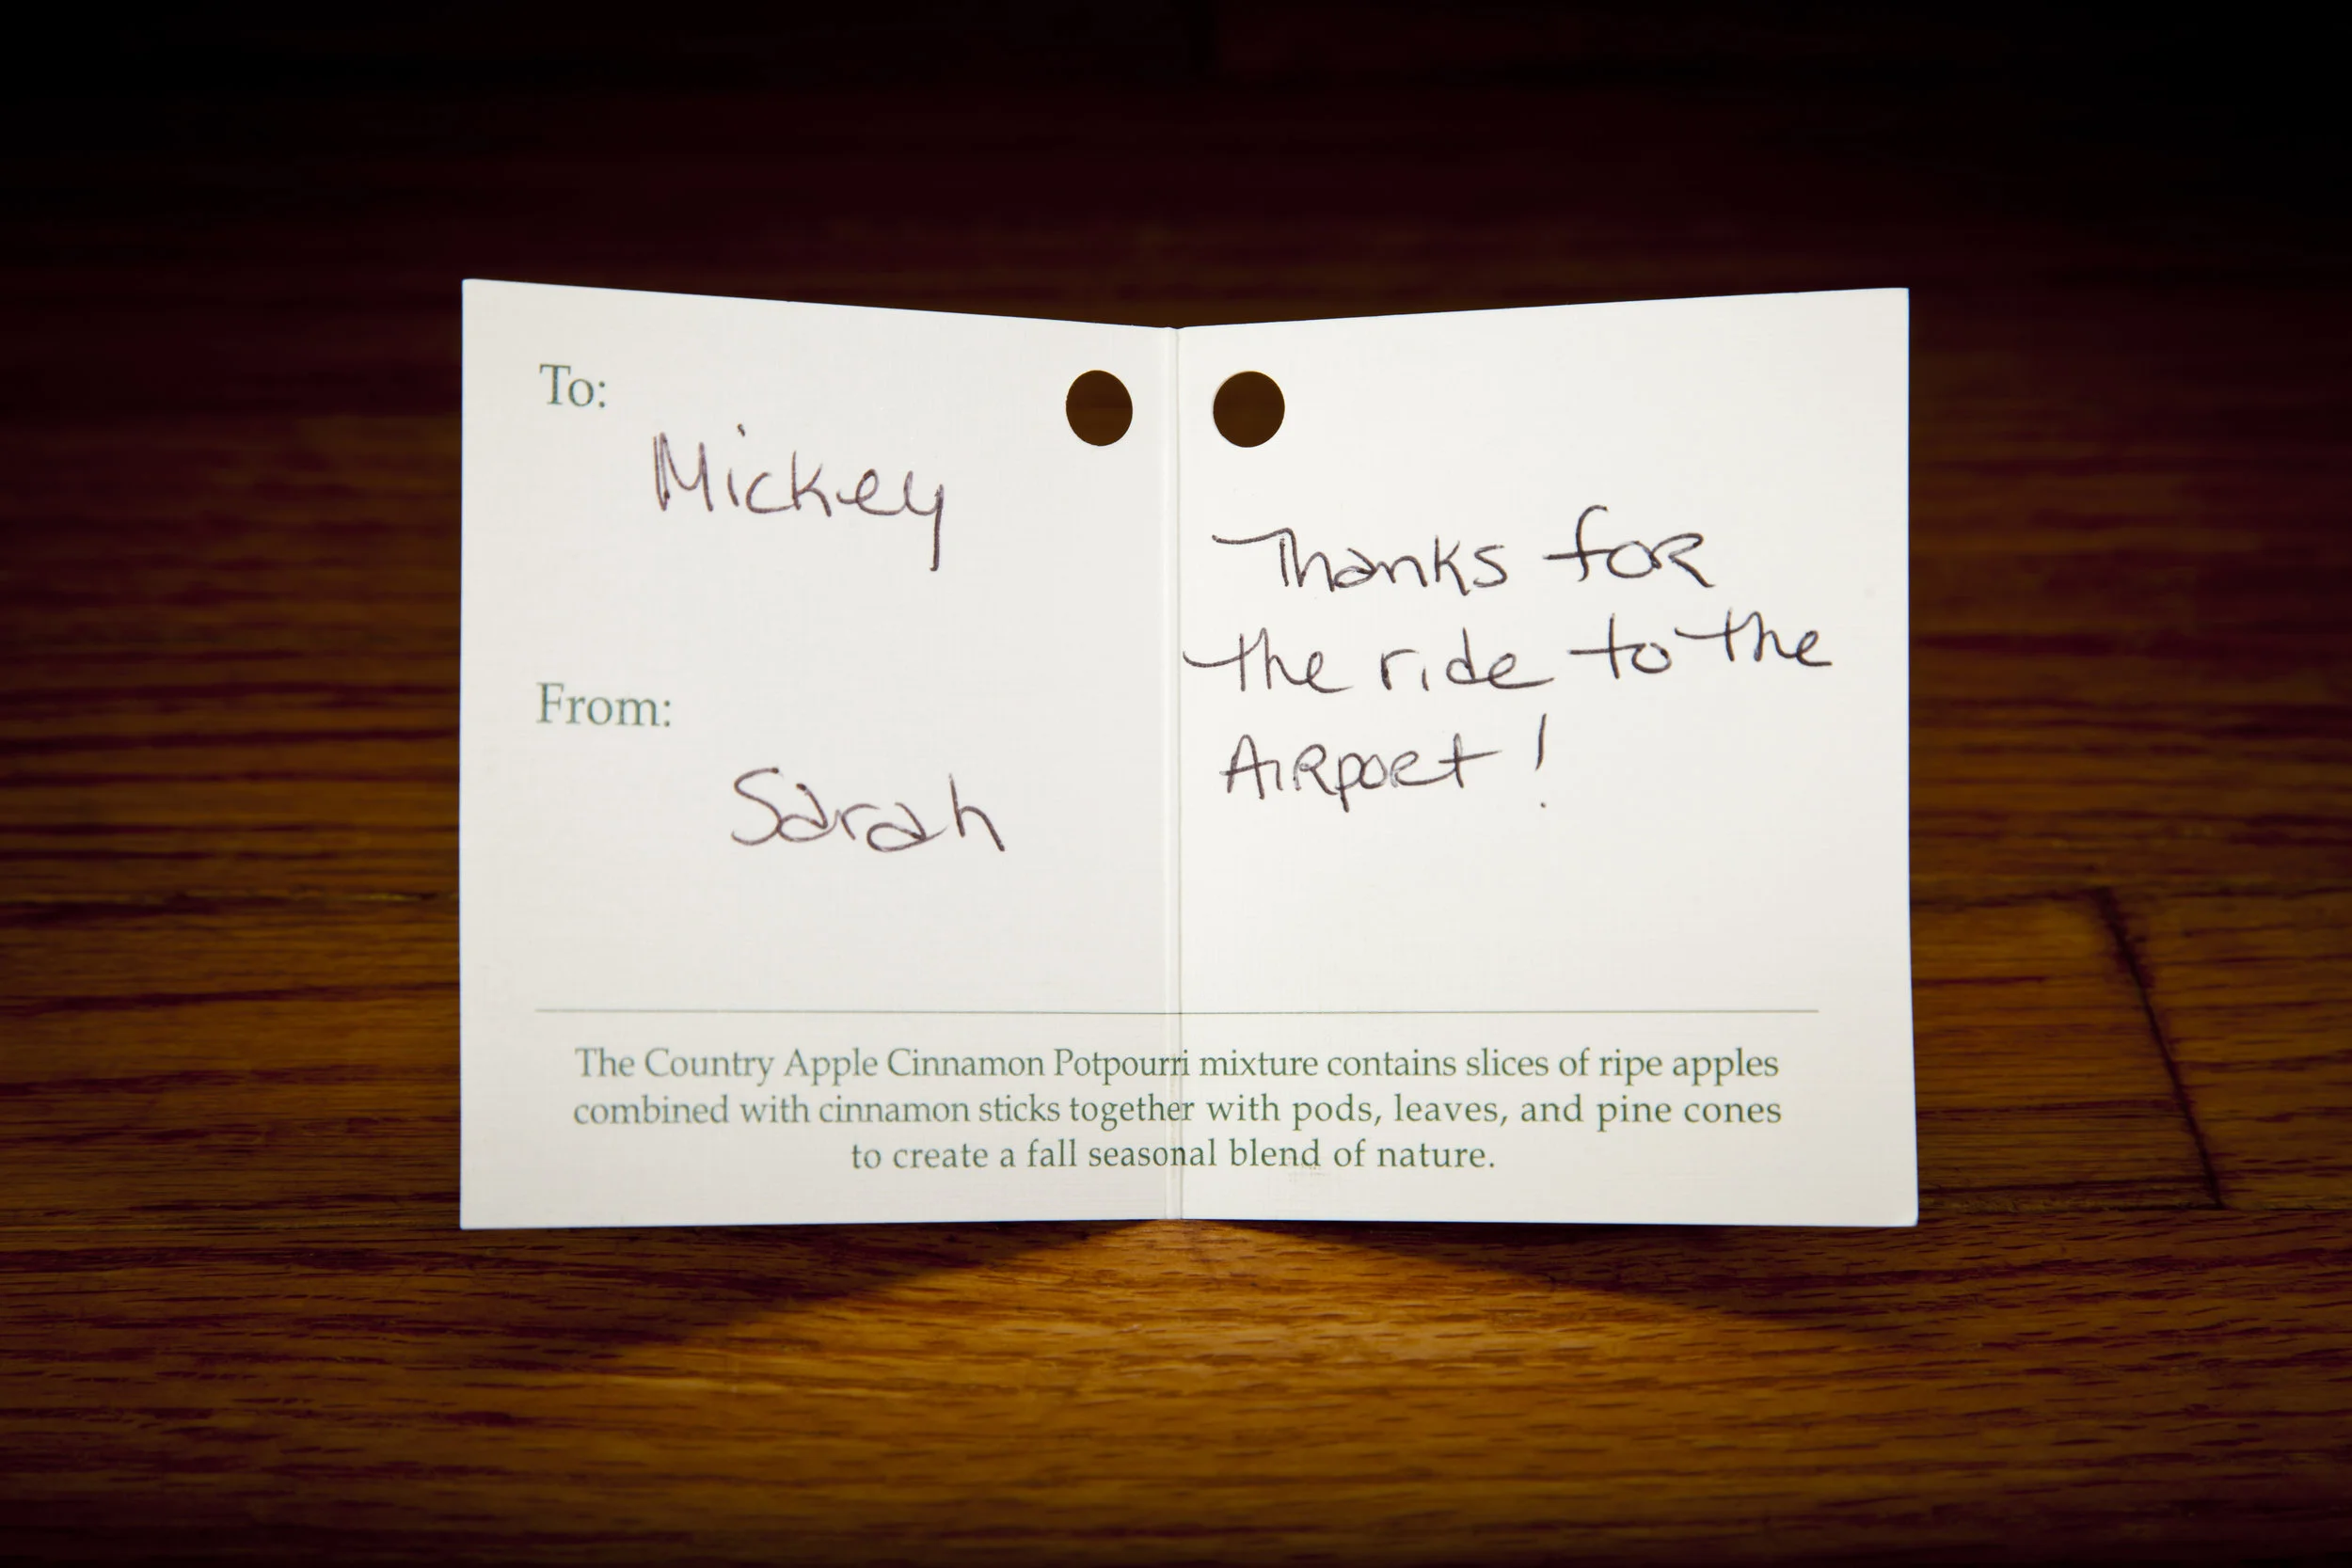 To:
Mickey
From:
Sarah
Thanks for
the ride to the
AiRport!
The Country Apple Cinnamon Potpourri mixture contains slices of ripe apples
combined with cinnamon sticks together with pods, leaves, and pine cones
to create a fall seasonal blend of nature.